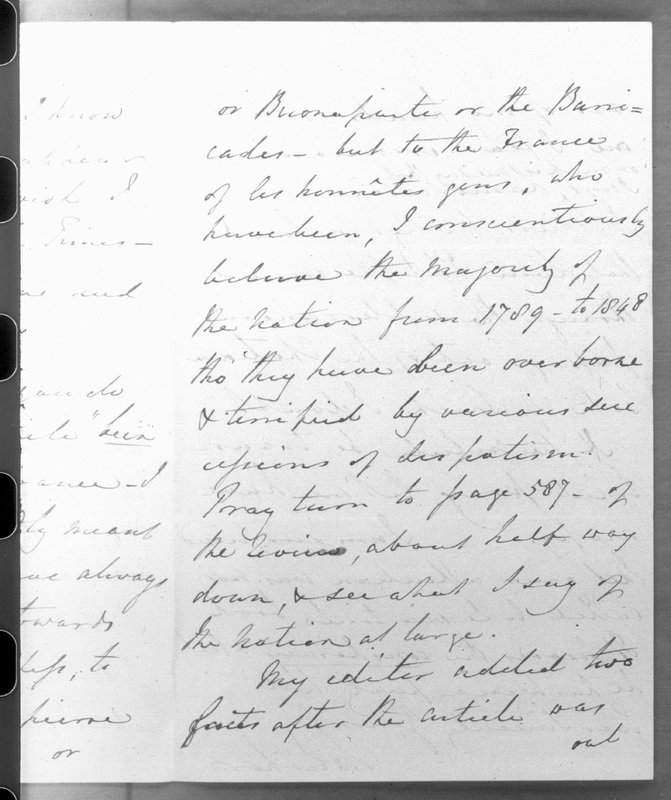 I know
wish I
Times —
and
you do
bein
France — I
meant
have always
towards
less, to
pierre
or
or Buonaparte or the Barri=
cades — but to the France
of les honnêtes gens, who
have been, I conscientiously
believe the majority of
the nation from 1789 — to 1848
tho' they have been overborne
& terrified by various suc
cessions of despotism.
Pray turn to page 587 — of
the review, about half way
down, & see what I say of
the nation at large.
My editor added two
facts after the article was
out